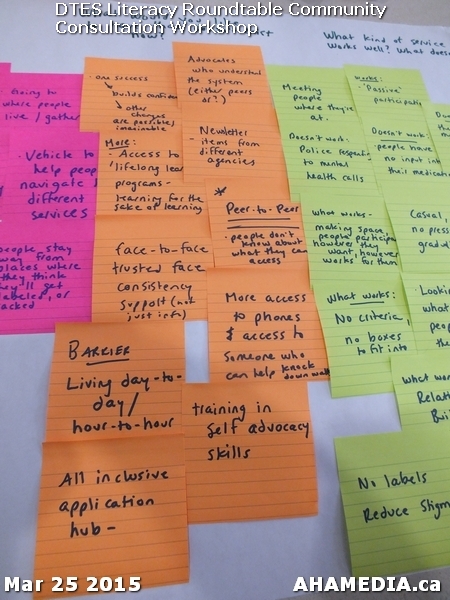 DTES Literacy Roundtable Community
Consultation Workshop
how?
What kind of service
works well? What
Going to
where people
live / gather
Vehicle to
help
navigate
different
services
people stay
away from
places where
they think
they'll get
labeled, or
One success
builds
other
changes
are possible/
imaginable
More:
- Access to
lifelong
programs -
learning for the
sake of learning
face-to-face
trusted face
consistency
support (not
just info)
BARRIER
Living day-to-
day /
hour-to-hour
All inclusive
application
hub -
Advocates
who understand
the system
(either peers
or?)
Newsletter
- items from
different
agencies
*
Peer-to-Peer
- people don't
know about
what they can
access
More access
to phones
& access to
someone who
can help knock
down
training in
self advocacy
skills
Meeting
people
where they're
at.
Doesn't work:
Police
to mental
health calls
What works -
making space,
people participate
however they
want, however
works for them
What works:
No criteria,
no boxes
to fit into
No labels
Reduce
Works:
- 'Passive'
Doesn't work:
- people have
no input
their
Casual,
no
what
Mar 25 2015
AHAMEDIA.ca